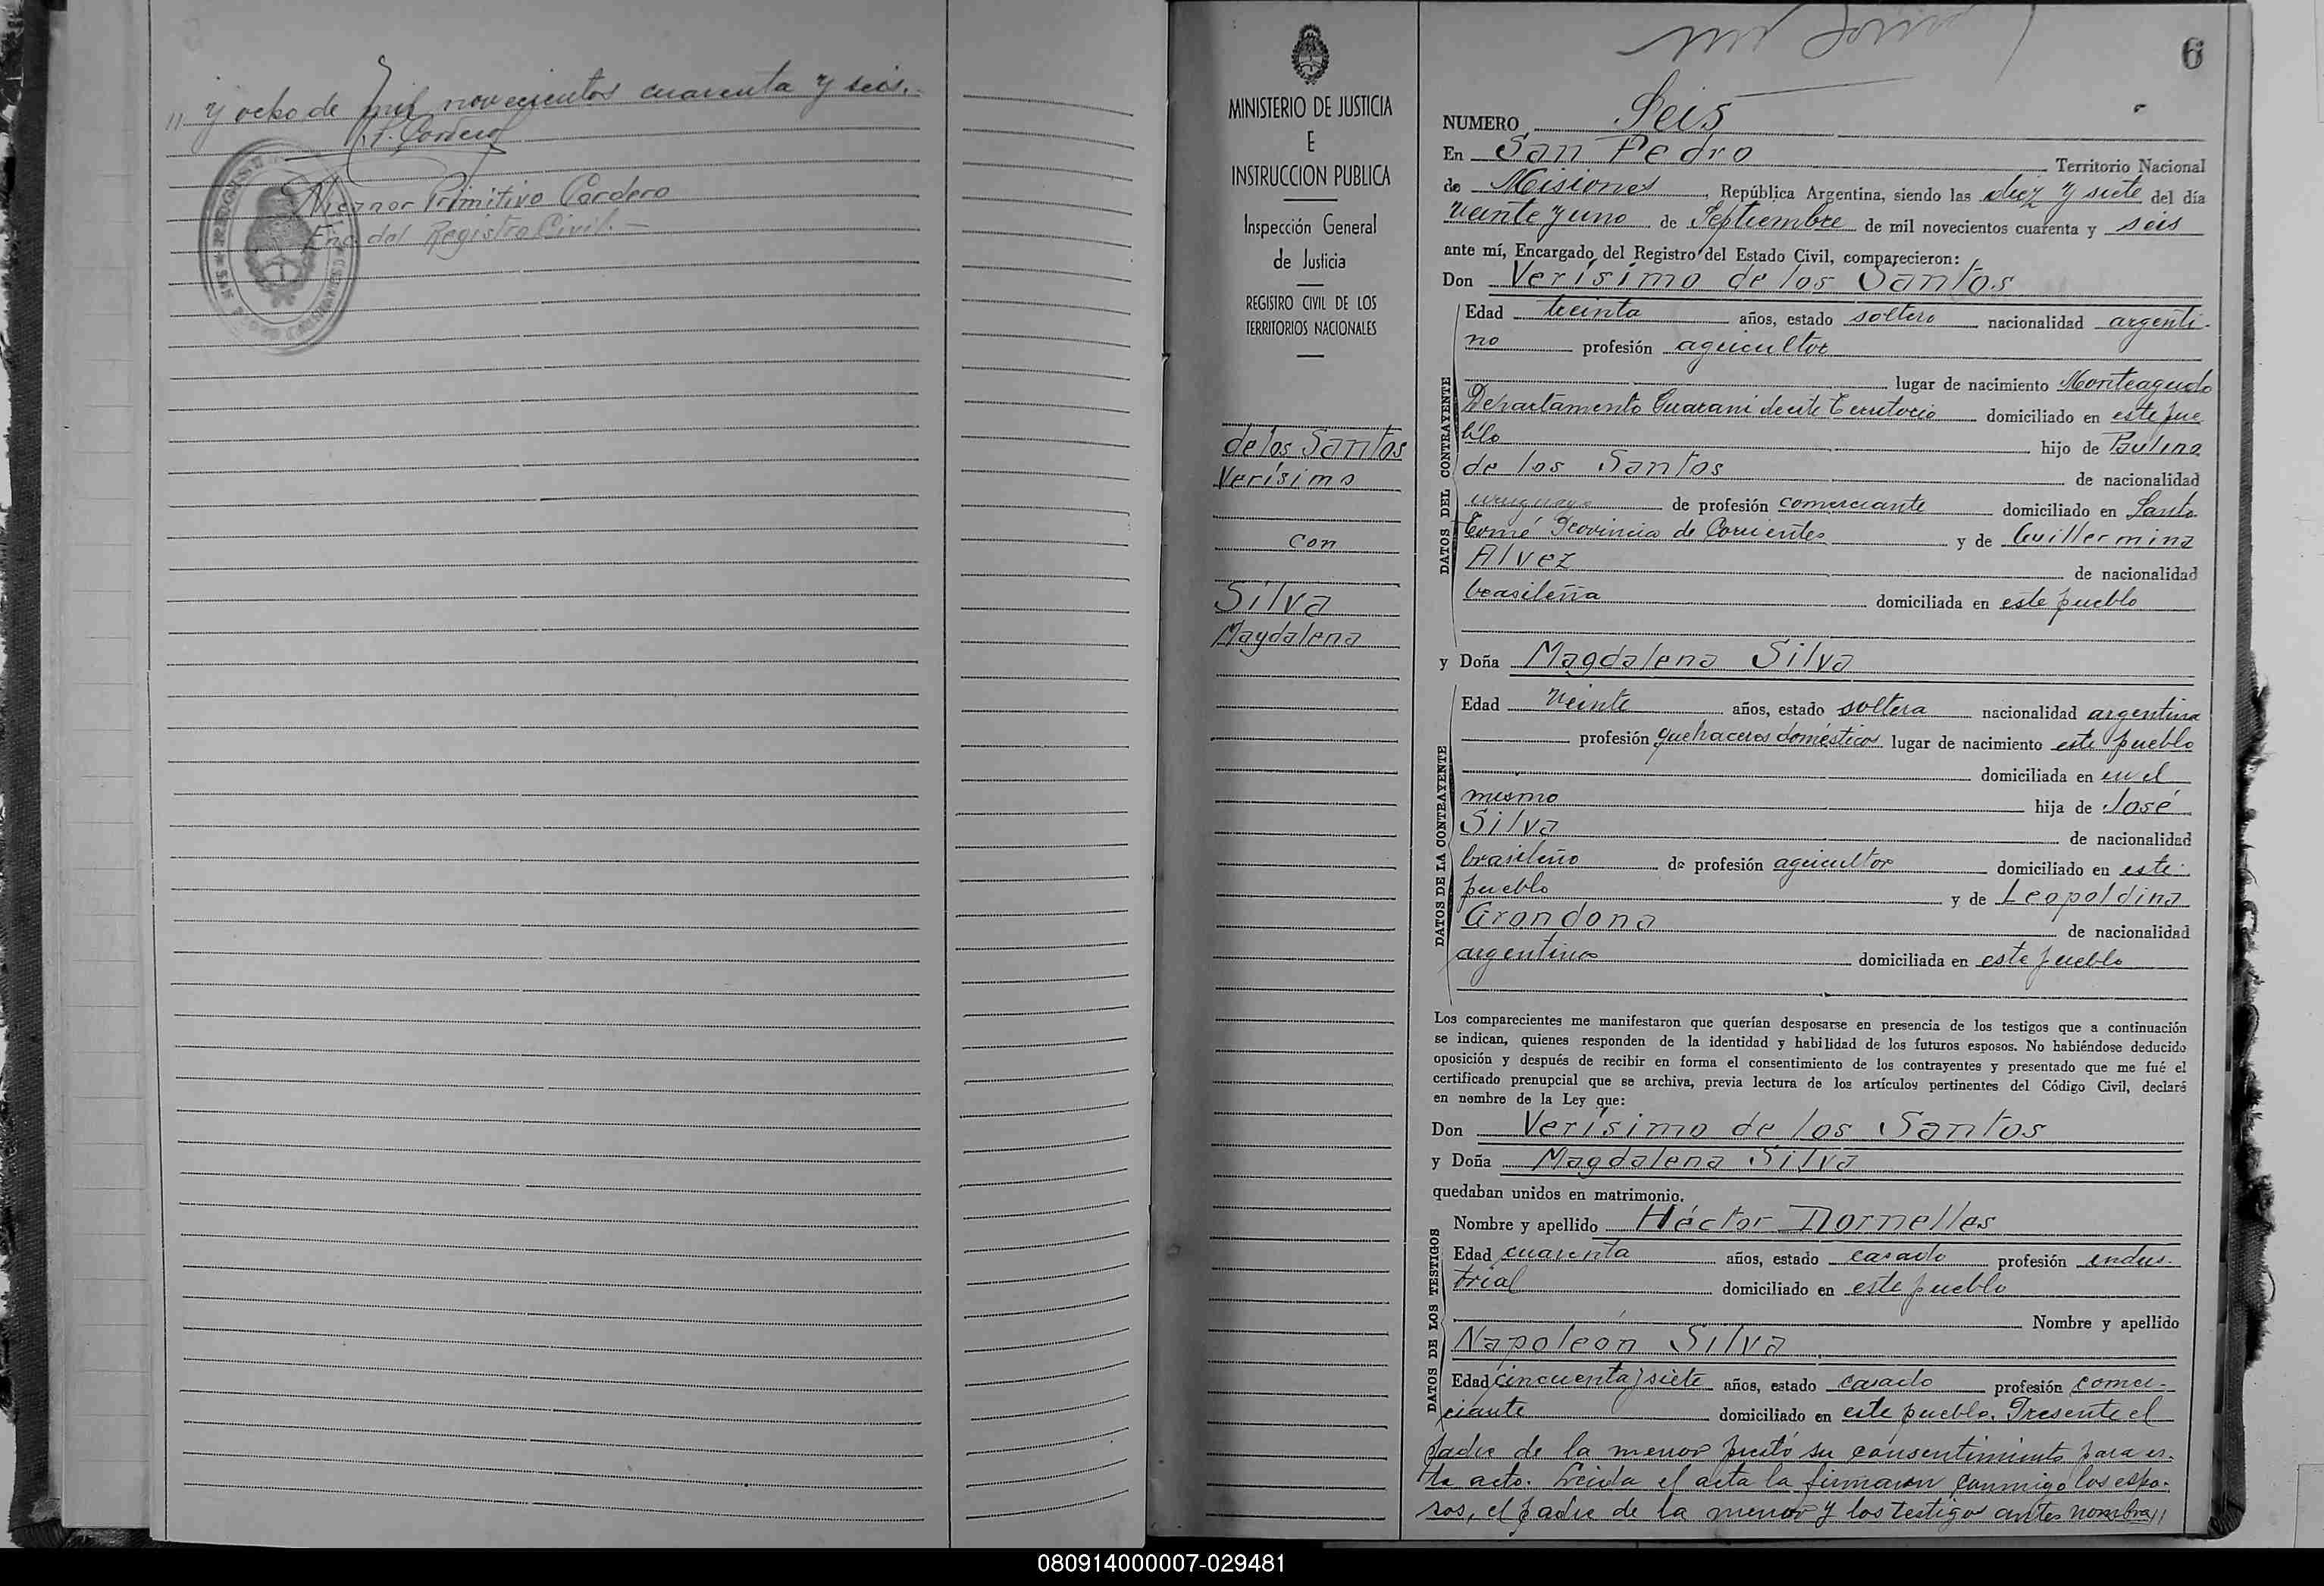 " y ocho de mil novecientos cuarenta y seis.
Nicanor Primitivo Cordero
Enc. del Registro Civil.
MINISTERIO DE JUSTICIA
E
INSTRUCCION PUBLICA
Inspección General
de Justicia
REGISTRO CIVIL DE LOS
TERRITORIOS NACIONALES
de los Santos
Verísimo
con
Silva
Magdalena
6
NUMERO Seis
En San Pedro Territorio Nacional
de Misiones, República Argentina, siendo las diez y siete del día
veinte y uno de Septiembre de mil novecientos cuarenta y seis
ante mí, Encargado del Registro del Estado Civil, comparecieron:
Don Verísimo de los Santos
DATOS DEL CONTRAYENTE
Edad treinta años, estado soltero nacionalidad argenti-
no profesión agricultor
lugar de nacimiento Monteagudo
Departamento Guaraní de este Territorio domiciliado en este pue
blo hijo de Paulino
de los Santos de nacionalidad
uruguaya de profesión comerciante domiciliado en Santo
Tomé Provincia de Corrientes y de Guillermina
Alvez de nacionalidad
brasileña domiciliada en este pueblo
y Doña Magdalena Silva
DATOS DE LA CONTRAYENTE
Edad veinte años, estado soltera nacionalidad argentina
profesión quehaceres domésticos lugar de nacimiento este pueblo
domiciliada en en el
mismo hija de José
Silva de nacionalidad
brasileño de profesión agricultor domiciliado en este
pueblo y de Leopoldina
Grondona de nacionalidad
argentina domiciliada en este pueblo
Los comparecientes me manifestaron que querían desposarse en presencia de los testigos que a continuación
se indican, quienes responden de la identidad y habilidad de los futuros esposos. No habiéndose deducido
oposición y después de recibir en forma el consentimiento de los contrayentes y presentado que me fué el
certificado prenupcial que se archiva, previa lectura de los artículos pertinentes del Código Civil, declaré
en nombre de la Ley que:
Don Verísimo de los Santos
y Doña Magdalena Silva
quedaban unidos en matrimonio.
DATOS DE LOS TESTIGOS
Nombre y apellido Héctor Dornelles
Edad cuarenta años, estado casado profesión indus-
trial domiciliado en este pueblo
Nombre y apellido
Napoleón Silva
Edad cincuenta y siete años, estado casado profesión comer-
ciante domiciliado en este pueblo. Presente el
padre de la menor prestó su consentimiento para es-
te acto. Leída el acta la firmaron conmigo los espo-
sos, el padre de la menor y los testigos antes nombra//
080914000007-029481